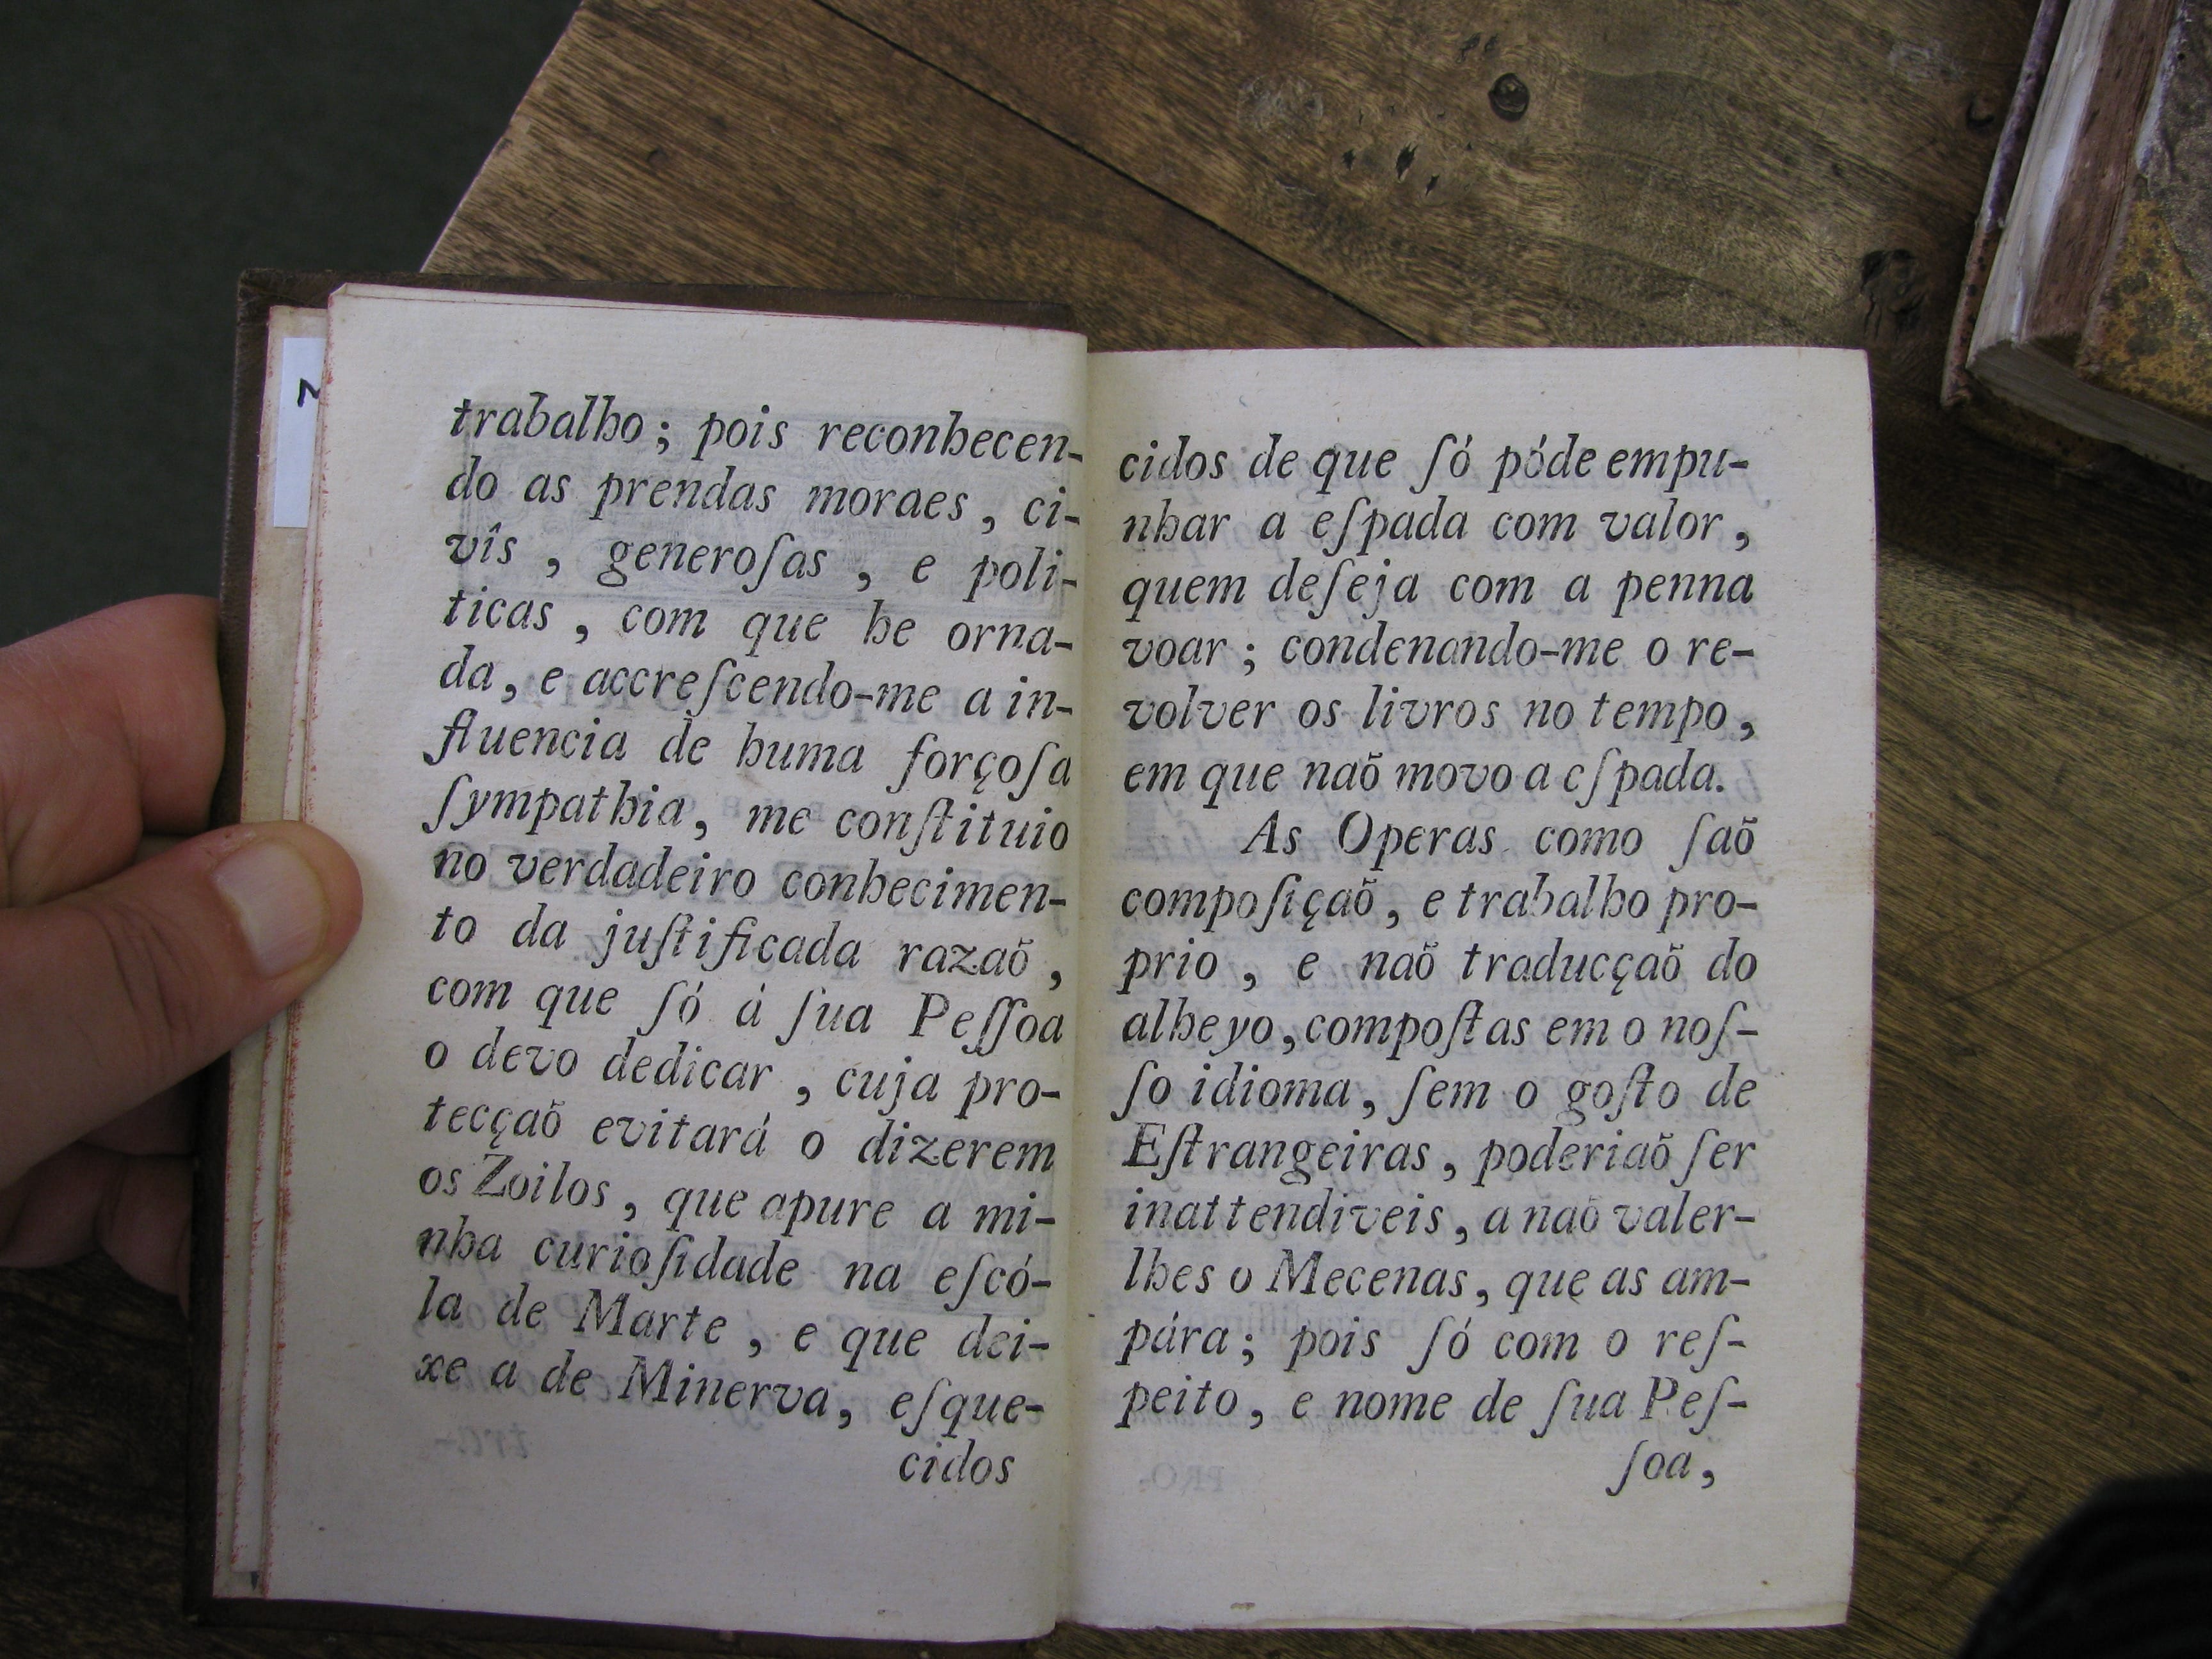 trabalho; pois reconhecen-
do as prendas moraes, ci-
vîs, generoſas, e poli-
ticas, com que he orna-
da, e accreſcendo-me a in-
fluencia de huma forçoſa
ſympathia, me conſtituio
no verdadeiro conhecimen-
to da juſtificada razaõ,
com que ſó á ſua Peſſoa
o devo dedicar, cuja pro-
tecçaõ evitará o dizerem
os Zoilos, que apure a mi-
nha curioſidade na eſcó-
la de Marte, e que dei-
xe a de Minerva, eſque-
cidos
cidos de que ſó póde empu-
nhar a eſpada com valor,
quem deſeja com a penna
voar; condenando-me o re-
volver os livros no tempo,
em que naõ movo a eſpada.
As Operas como ſaõ
compoſiçaõ, e trabalho pro-
prio, e naõ traducçaõ do
alheyo, compoſtas em o noſ-
ſo idioma, ſem o goſto de
Eſtrangeiras, poderiaõ ſer
inattendiveis, a naõ valer-
lhes o Mecenas, que as am-
pára; pois ſó com o reſ-
peito, e nome de ſua Peſ-
ſoa,